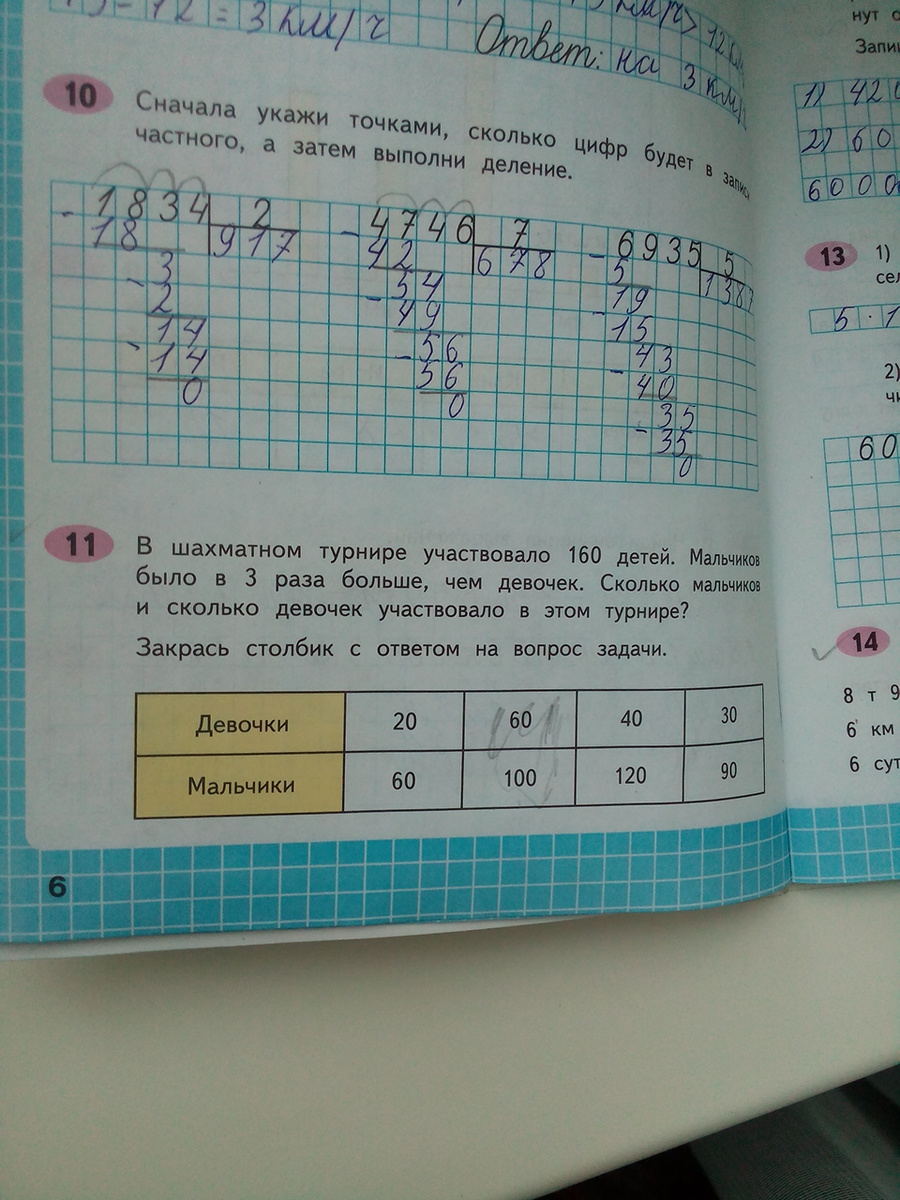 - 12 = 3 км/ч
Ответ: на 3 км/ч
10
Сначала укажи точками, сколько цифр будет в записи
частного, а затем выполни деление.
- 1834 2
18 917
3
- 2
14
- 14
0
- 4746 7
42 678
54
- 49
56
- 56
0
- 6935 5
5 1387
19
- 15
43
- 40
35
- 35
0
11
В шахматном турнире участвовало 160 детей. Мальчиков
было в 3 раза больше, чем девочек. Сколько мальчиков
и сколько девочек участвовало в этом турнире?
Закрась столбик с ответом на вопрос задачи.
Девочки 20 60 40 30
Мальчики 60 100 120 90
6
нут
1) 420
2) 60
6000
13 1)
5 · 1
2)
60
14
8 т 9
6 км
6 сут